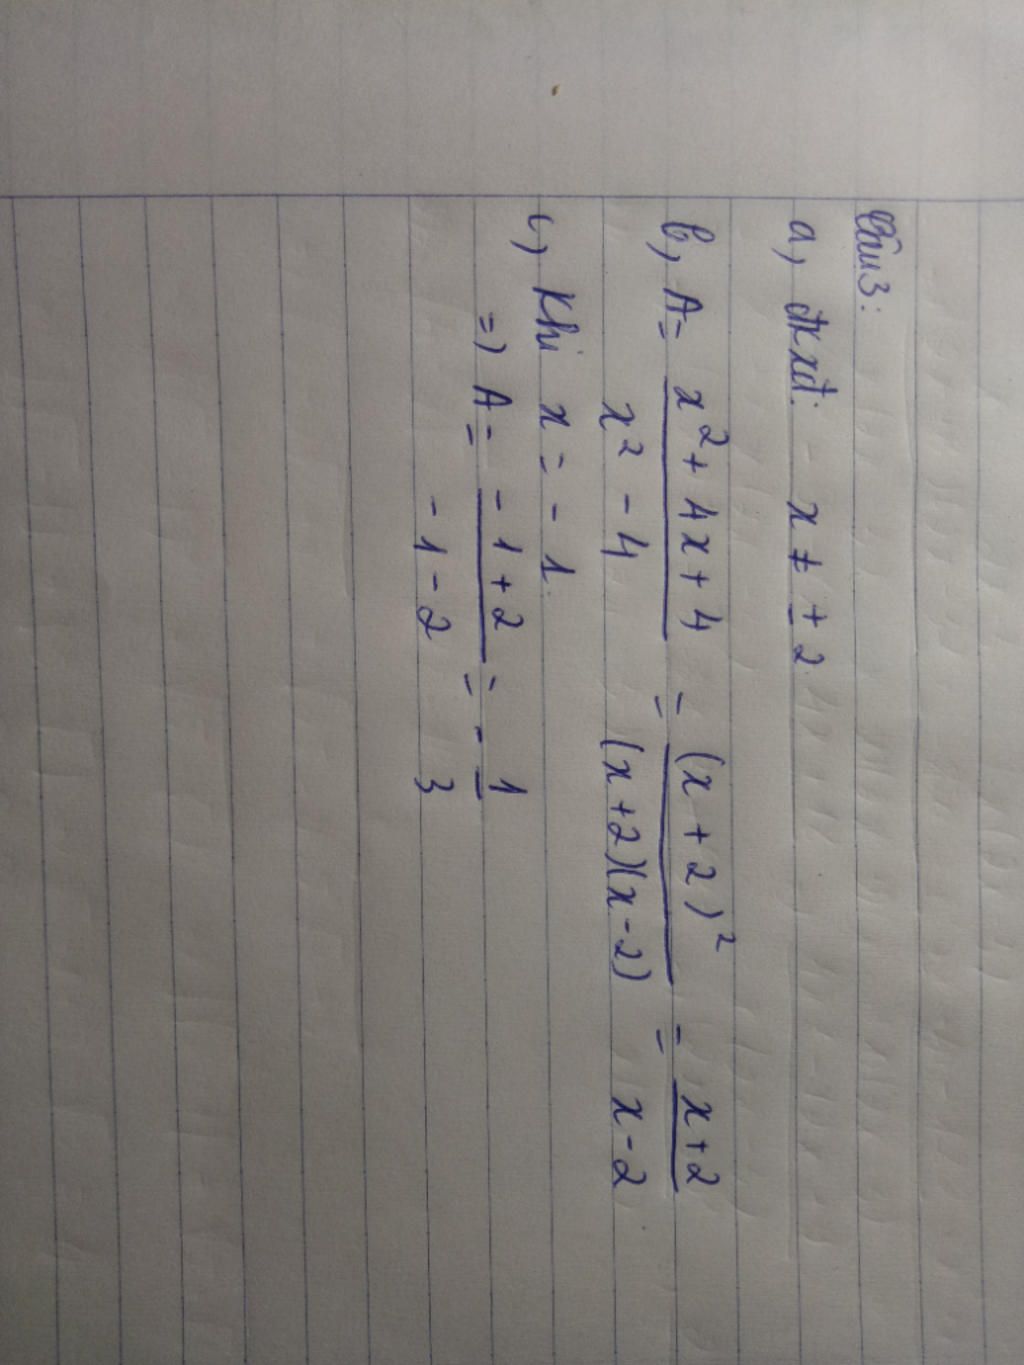 Câu 3:
a, đkxđ: x ≠ ± 2
b, A = x² + 4x + 4 / x² - 4 = (x + 2)² / (x + 2)(x - 2) = x + 2 / x - 2
c, Khi x = - 1
=) A = - 1 + 2 / - 1 - 2 = - 1 / 3